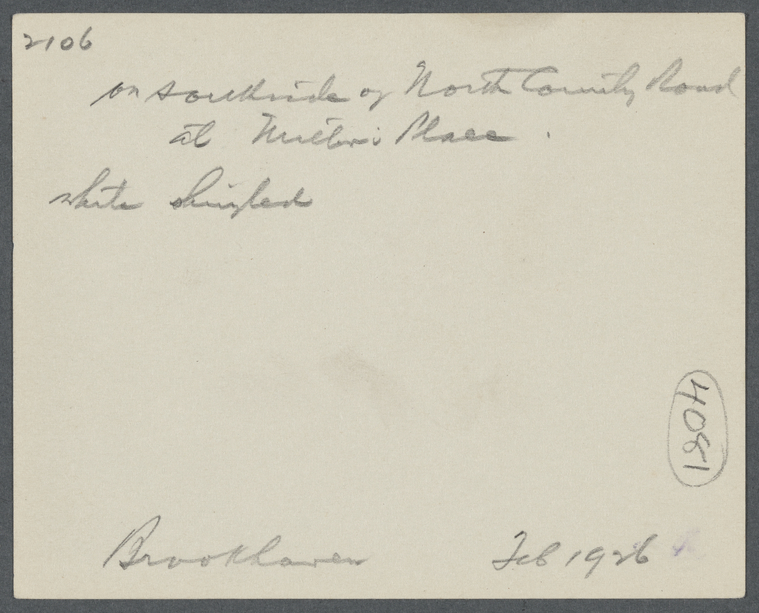 2106
on south side of North Country Road
at Miller's Place.
white shingled
4081
Brookhaven Feb 1926